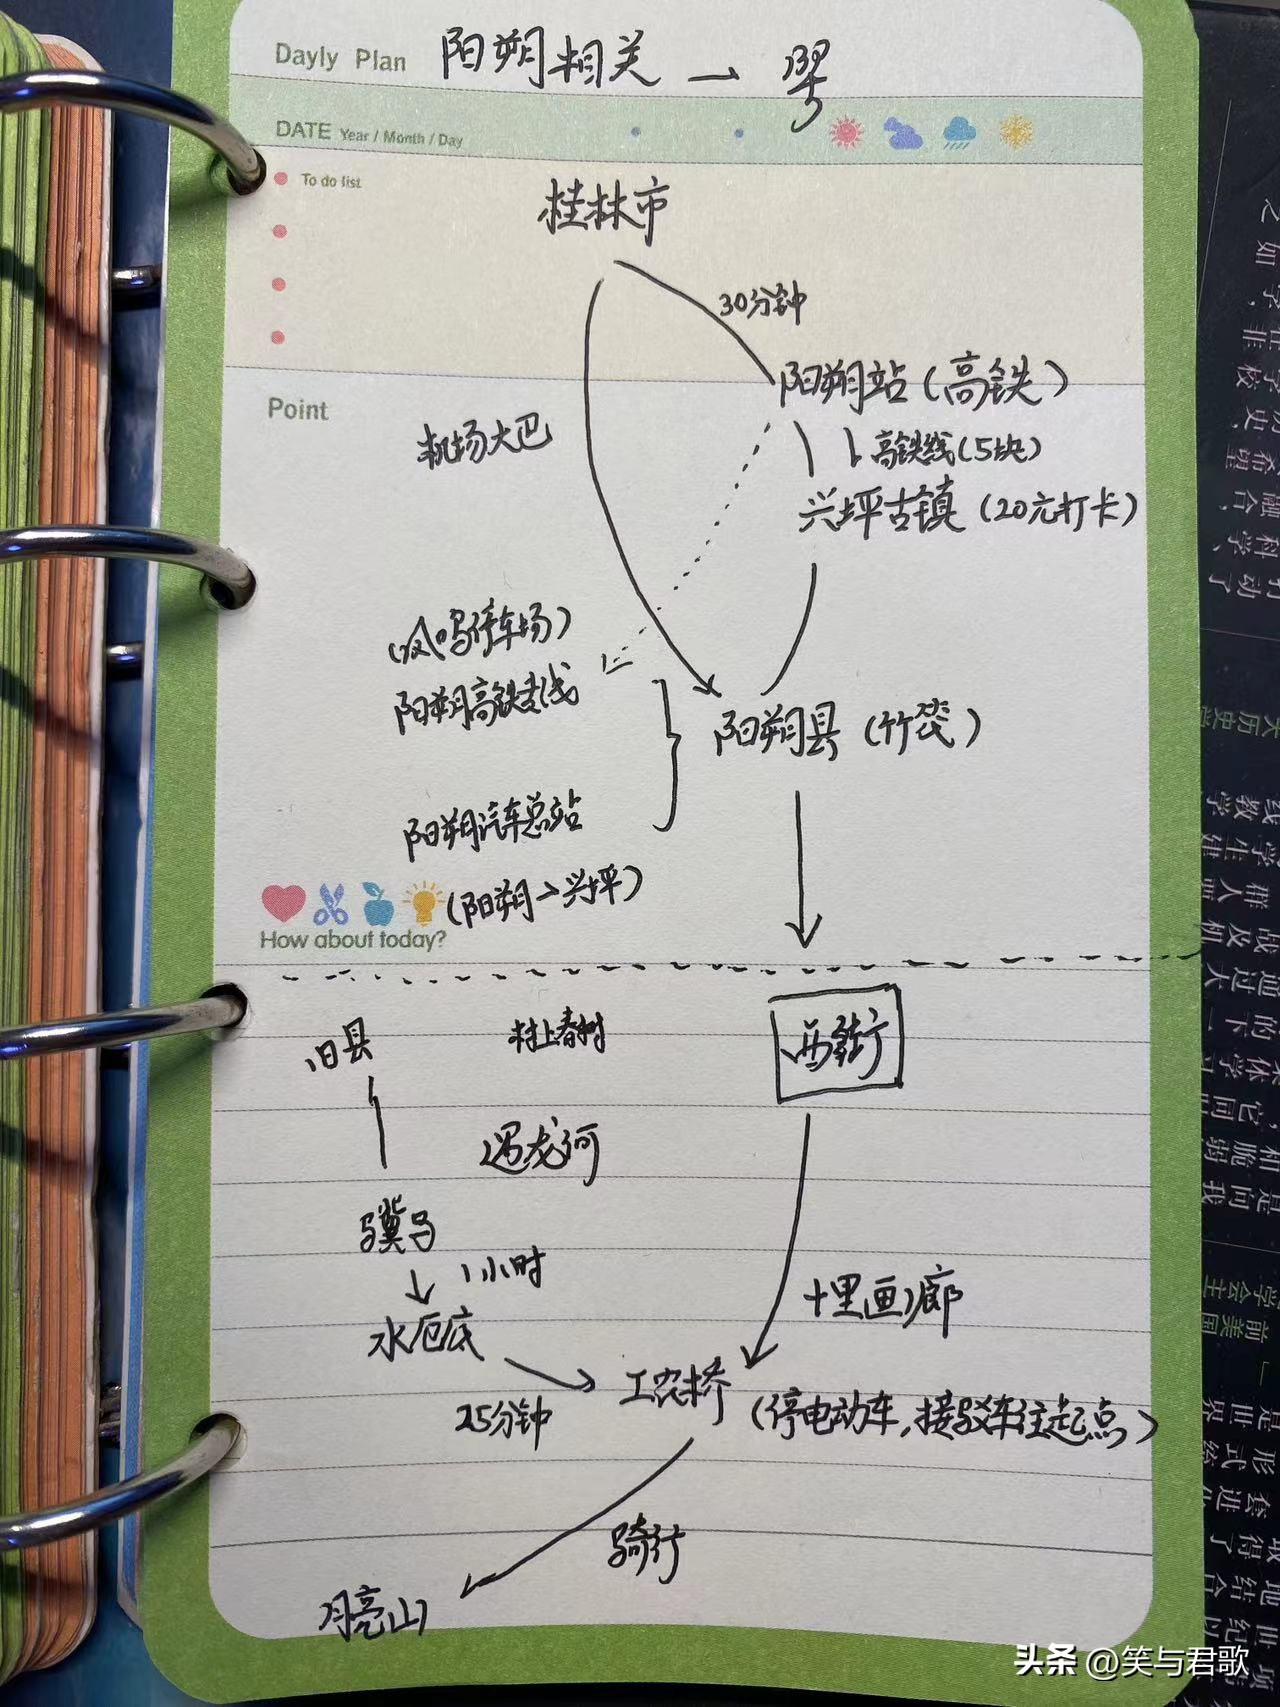 Dayly Plan 阳朔相关 →
DATE Year / Month / Day
To do list
桂林市
30分钟
阳朔站（高铁）
Point
机场大巴
高铁线（5块）
兴坪古镇（20元打卡）
（凤鸣停车场）
阳朔高铁专线
阳朔县（竹筏）
阳朔汽车总站
（阳朔→兴坪）
How about today?
旧县
村上春树
西街
遇龙河
骥马
1小时
十里画廊
水厄底
工农桥
25分钟
（停电动车，接驳车往起点）
骑行
月亮山
头条 @笑与君歌